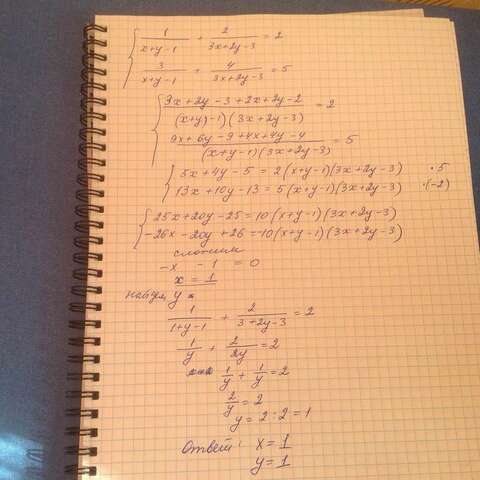 1/(x+y-1) + 2/(3x+2y-3) = 2
3/(x+y-1) + 4/(3x+2y-3) = 5
(3x+2y-3+2x+2y-2)/((x+y)-1)(3x+2y-3) = 2
(9x+6y-9+4x+4y-4)/(x+y-1)(3x+2y-3) = 5
5x+4y-5 = 2(x+y-1)(3x+2y-3) ·5
13x+10y-13 = 5(x+y-1)(3x+2y-3) ·(-2)
25x+20y-25 = 10(x+y-1)(3x+2y-3)
-26x-20y+26 = -10(x+y-1)(3x+2y-3)
сложим
-x - 1 = 0
x = 1
найдем y
1/(1+y-1) + 2/(3+2y-3) = 2
1/y + 2/2y = 2
1/y + 1/y = 2
2/y = 2
y = 2·2 = 1
Ответ: x = 1
y = 1